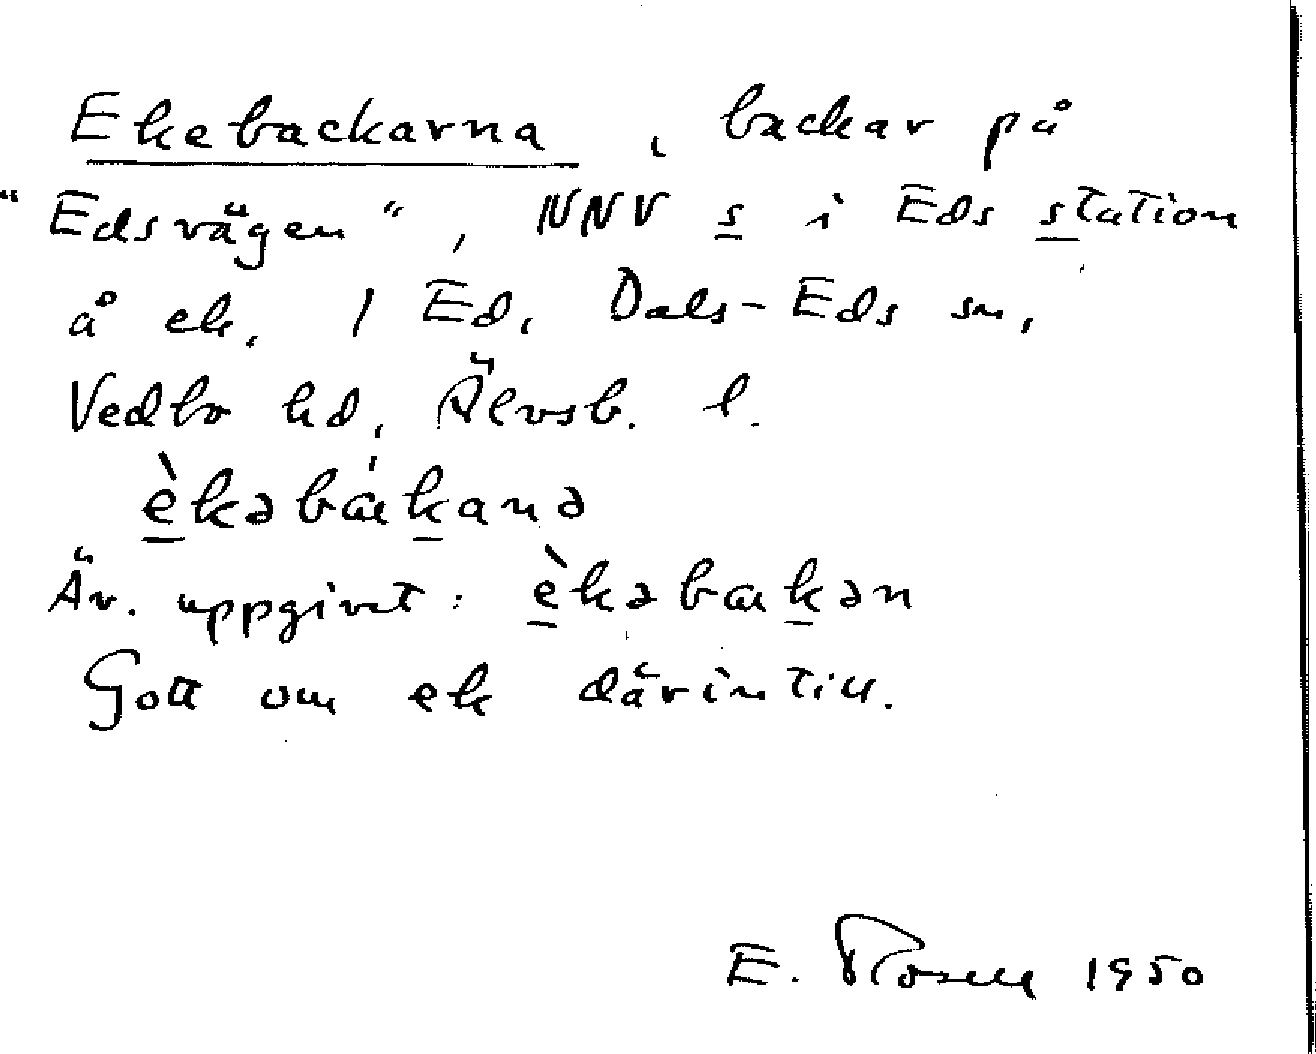 Ekebackarna, backar på
"Edsvägen", NNV s i Eds station
å ek. I Ed, Dals-Eds sn,
Vedbo hd, Älvsb. l.
èkəbákanə
Äv. uppgivet: èkəbakən
Gott om ek därintill.
E. Rosell 1950